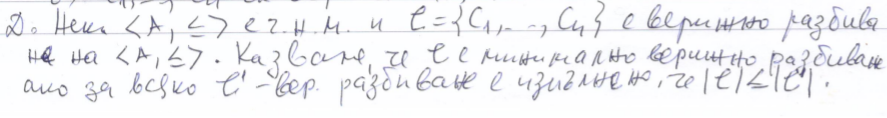 D. Нека <A, ≤> е ч.н.м. и C={C₁,..,Cₙ} е верижно разбива
не на <A,≤>. Казваме, че C е минимално верижно разбиване
ако за всяко C' -вер. разбиване е изпълнено, че |C|≤|C'|.